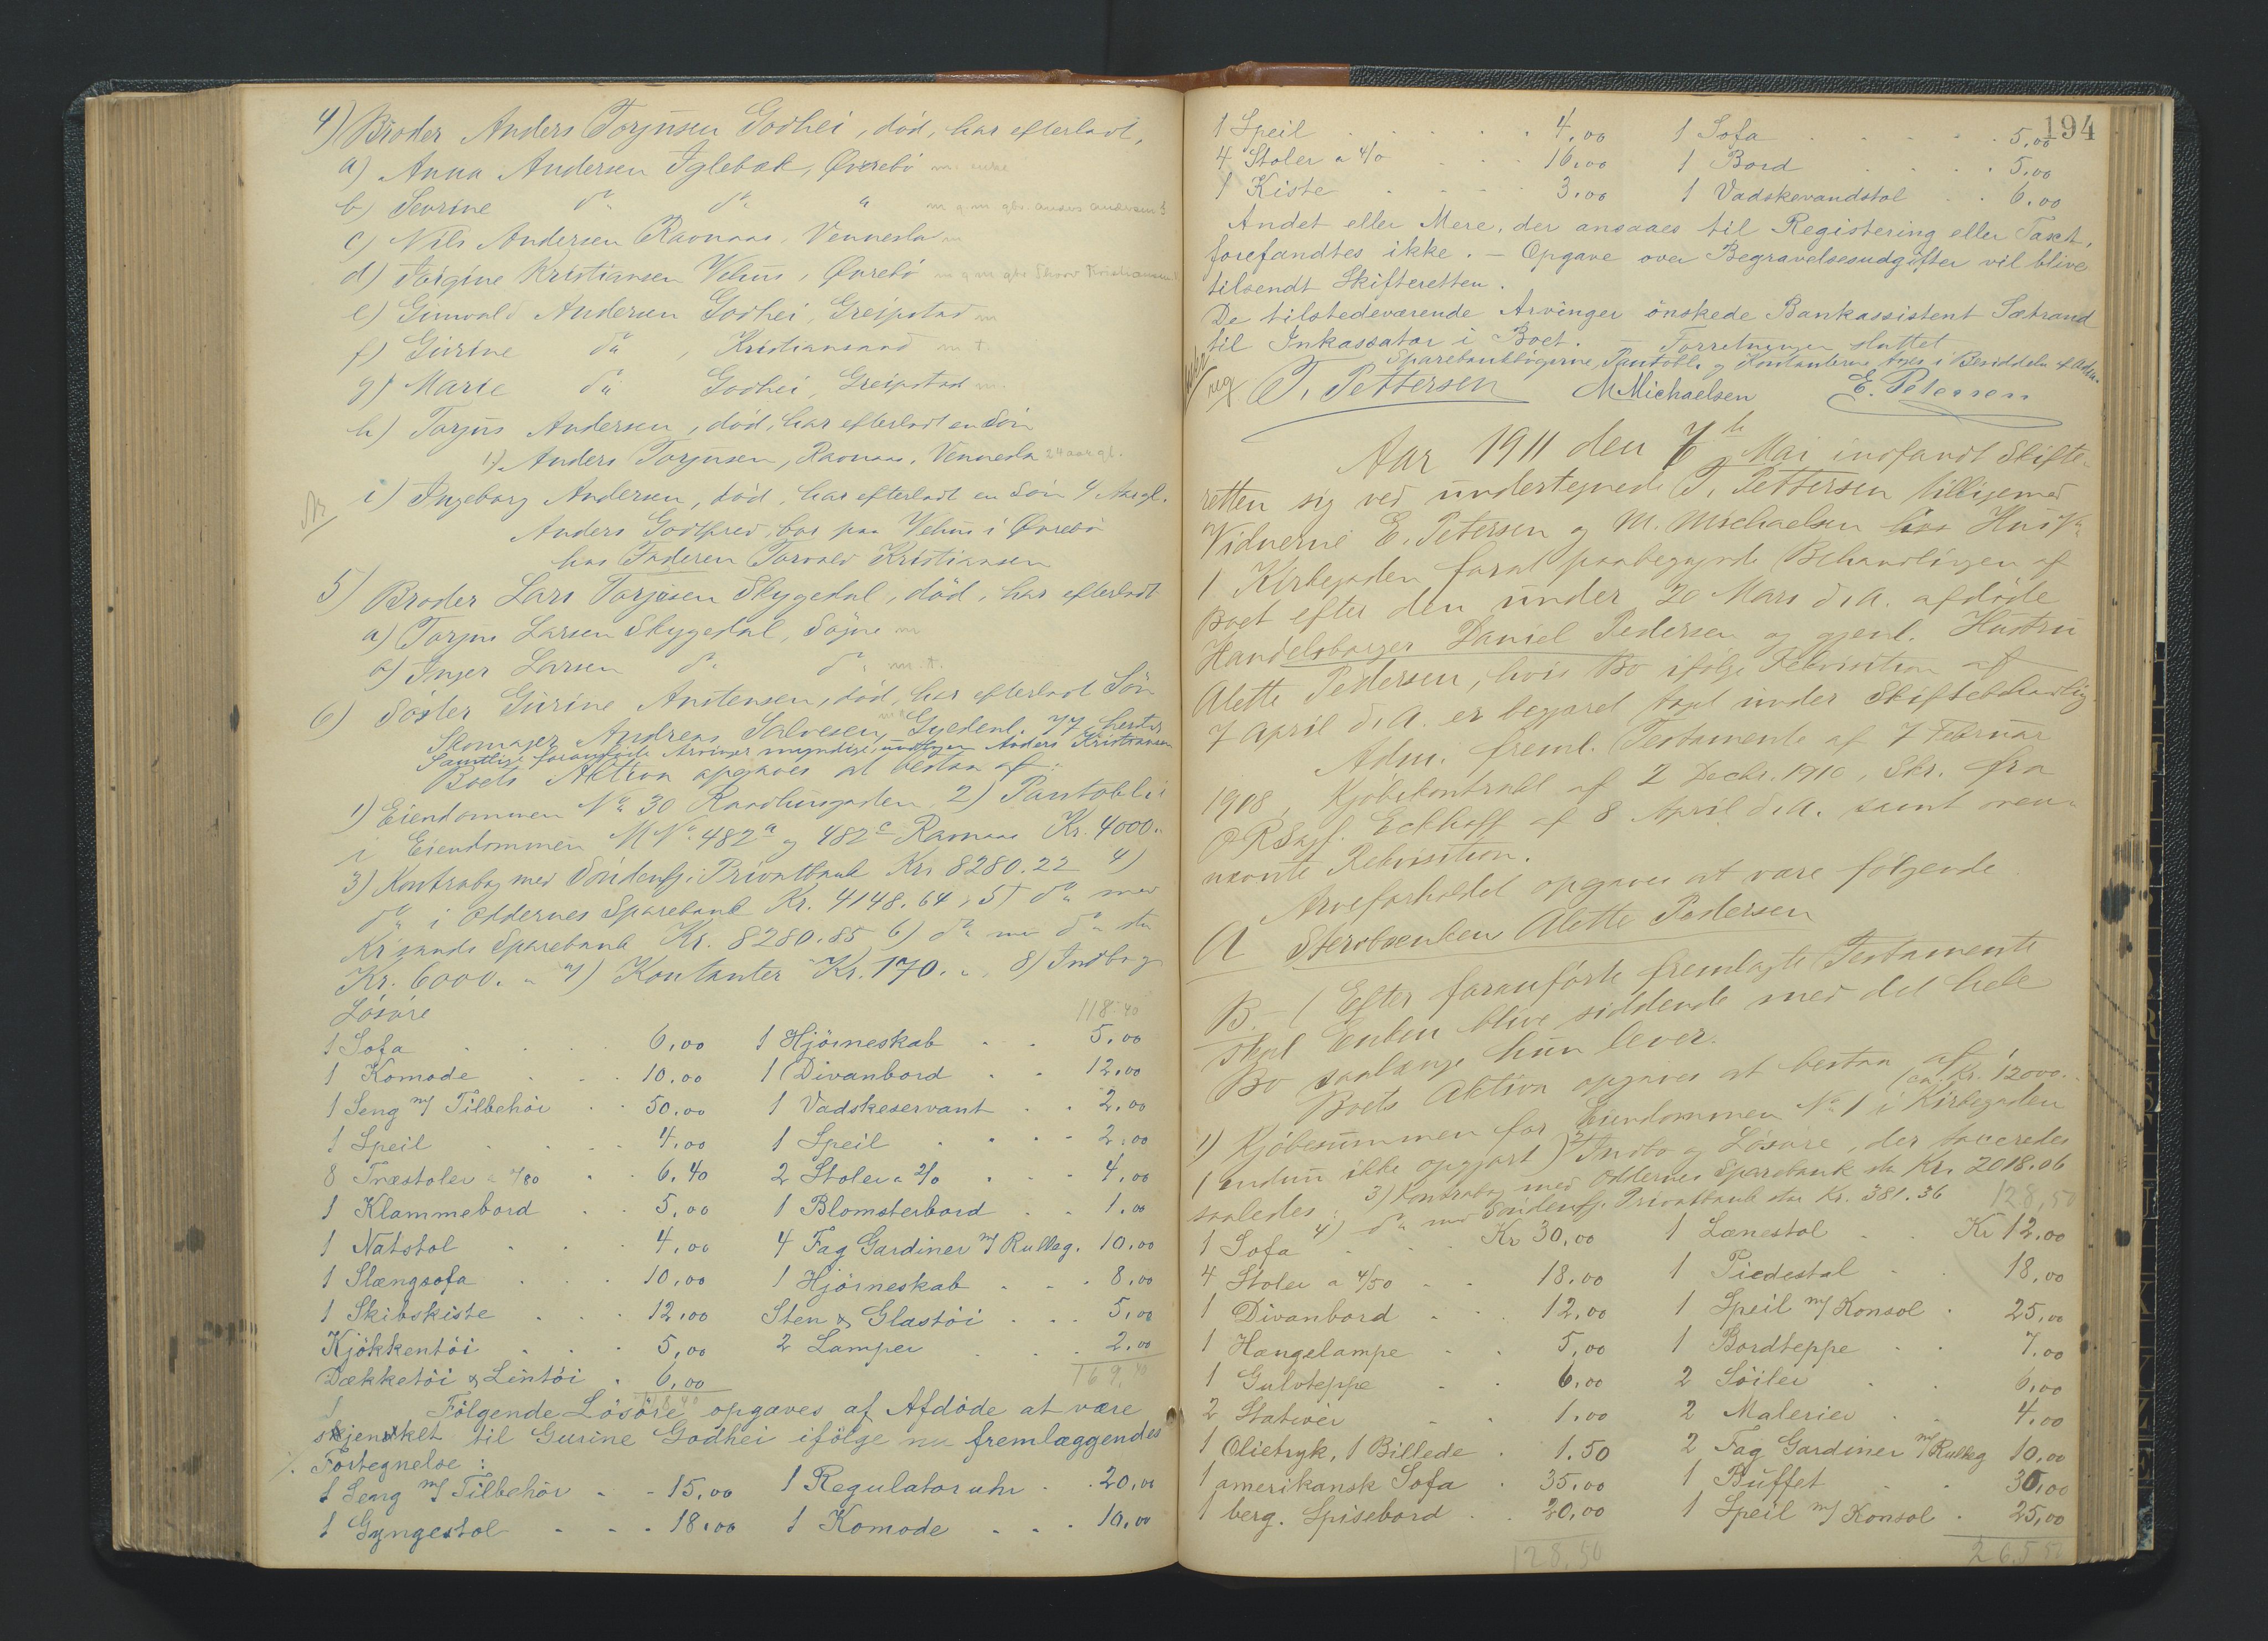 4) Broder Anders Torjusen Godhei, död, har efterladt,
a) Anna Andersen Iglebæk, Øvrebö m. enke
b) Sevrine do do " m g.m gbr. anders andersen
c) Nils Andersen Ravnaas, Vennesla m
d) Torgine Kristiansen Vehus, Øvrebö m g m gbr Kristiansen
e) Gunvald Andersen Godhei, Greipstad m
f) Gurine do , Kristianssand m t.
g) Marie do Godhei, Greipstad m.
h) Torjus Andersen, död, har efterladt en Sön
1) Anders Torjusen, Ravnaas, Vennesla 24 aar gl.
i) Ingeborg Andersen, död, har efterladt en Sön 4 Aar gl.
Anders Godtfred, bor paa Vehus i Øvrebö
hos Faderen Torvald Kristiansen
5) Broder Lars Torjusen Skygedal, död, har efterladt
a) Torjus Larsen Skyggedal, Søgne m
b) Inger Larsen do do m.t.
6) Söster Gurine Anstensen, död, har efterladt Sön
Skomager Andreas Salvesen, Gyldenl. 77, hersteds
Samtlige foranførte Arvinger myndige, undtagen Anders Kristiansen
Boets Aktiva opgaves at bestaa af:
1) Eiendommen No 30 Raadhusgaden 2) Pantobl.
i Eiendommen M No 482a og 482c Ravnaas Kr. 4000."
3) Kontrabog med Söndenfj. Privatbank Kr. 8280.22 4)
do i Oddernes Sparebank Kr. 4148.64; 5) do med
Kr.sands Sparebank Kr. 8280.85 6) do med do stor
Kr. 6000. " 7) Kontanter Kr. 170. " 8) Indbo og
Lösöre 118.40
1 Sofa . . . 6,00 1 Hjörneskab . . 5,00
1 Komode . . . 10.00 1 Divanbord . . 12,00
1 Seng m/ Tilbehör . . 50,00 1 Vadskeservant . . 2,00
1 Speil . . . 4,00 1 Speil . . . 2,00
8 Træstoler a "/80 . . 6,40 2 Stoler a 2/0 . . . 4,00
1 Klammebord . . 5,00 1 Blomsterbord . . 1,00
1 Natstol . . . 4,00 4 Fag Gardiner m/ Rullag. 10,00
1 Slængsofa . . . 10,00 1 Hjörneskab . . . 8,00
1 Skibskiste . . . 12,00 Sten & Glastöi . . . 5,00
Kjökkentöi . . . 5,00 2 Lamper . . . 2,00
Dækketöi & Lintöi . 6,00 169,40
118,40
Fölgende Lösöre opgaves af Afdöde at være
skjenket til Gurine Godhei ifölge nu fremlæggendes
Fortegnelse:
1 Seng m/ Tilbehör . . 15,00 1 Regulatoruhr . . 20,00
1 Gyngestol . . . 18,00 1 Komode . . . 10,00
194
1 Speil . . . . 4,00 1 Sofa . . . . 5,00
4 Stoler a 4/0 . . . 16,00 1 Bord . . . . 5,00
1 Kiste . . . . 3,00 1 Vadskevandstol . . 6,00
Andet eller Mere, der ansaaes til Registering eller Taxt,
forefandtes ikke. – Opgave over Begravelsesudgifter vil blive
tilsendt Skifteretten.
De tilstedeværende Arvinger önskede Bankassistent Sætrand
til Inkassator i Boet. – Forretningen sluttet
Sparebankbøgerne, Pantobl. og Kontanterne toges i Besiddelse af Adm.
T. Pettersen M Michaelsen E. Petersen
Aar 1911 den 7de Mai indfandt Skifte-
retten sig ved undertegnede T. Pettersen tilligemed
Vidnerne E. Petersen og M. Michaelsen hos Hus No
1 Kirkegaden forat paabegynde Behandlingen af
Boet efter den under 20 Mars d.A. afdöde
Handelsborger Daniel Pedersen og gjenl. Hustru
Alette Pedersen, hvis Bo ifölge Rekvisition af
7 April d.A. er begjæret taget under Skiftebehandling
Adm. freml. Testamente af 7 Februar
1908, Kjöbekontrakt af 2 Decbr. 1910, Skr. fra
ORSagf. Eckhoff af 8 April d.A. samt oven-
nævnte Rekvisition.
Arveforholdet opgaves at være fölgende
A Stervboenken Alette Pedersen
B. – ( Efter foranförte fremlagte Testamente
skal Enken blive siddende med det hele
Bo saalænge hun lever.
Boets Aktiva opgaves at bestaa af
1) Kjöbesummen for Eiendommen No 1 i Kirkegaden (ca. Kr. 12000.
(endnu ikke opgjort) 2) Indbo og Lösöre, der taxeredes
saaledes: 3) Kontrabog med Oddernes Sparebank stor Kr. 2018.06
4) do med Söndenfj. Privatbank stor Kr. 381.36 128,50
1 Sofa . . . Kr 30,00 1 Lænestol . . Kr 12,00
4 Stoler a 4/50 . . 18,00 1 Piedestal . . 18,00
1 Divanbord . . 12,00 1 Speil m/ Konsol . 25,00
1 Hængelampe . . 5,00 1 Bordteppe . . 7,00
1 Gulvteppe . . 6,00 2 Söiler . . 6,00
2 Stativer . . 1,00 2 Malerier . . 4,00
1 Olietryk, 1 Billede . 1.50 2 Fag Gardiner m/ Rullag 10,00
1 amerikansk Sofa . 35,00 1 Buffet . . 30,00
1 berg. Spisebord . . 20,00 1 Speil m/ Konsol . 25,00
128,50 265,50